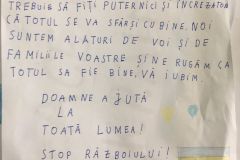 TREBUIE SĂ FIȚI PUTERNICI ȘI ÎNCREZĂTORI
CĂ TOTUL SE VA SFÂRȘI CU BINE. NOI
SUNTEM ALĂTURI DE VOI ȘI DE
FAMILIILE VOASTRE ȘI NE RUGĂM CA
TOTUL SA FIE BINE, VĂ IUBIM.
DOAMNE AJUTĂ
LA
TOATĂ LUMEA!
STOP RĂZBOIULUI!